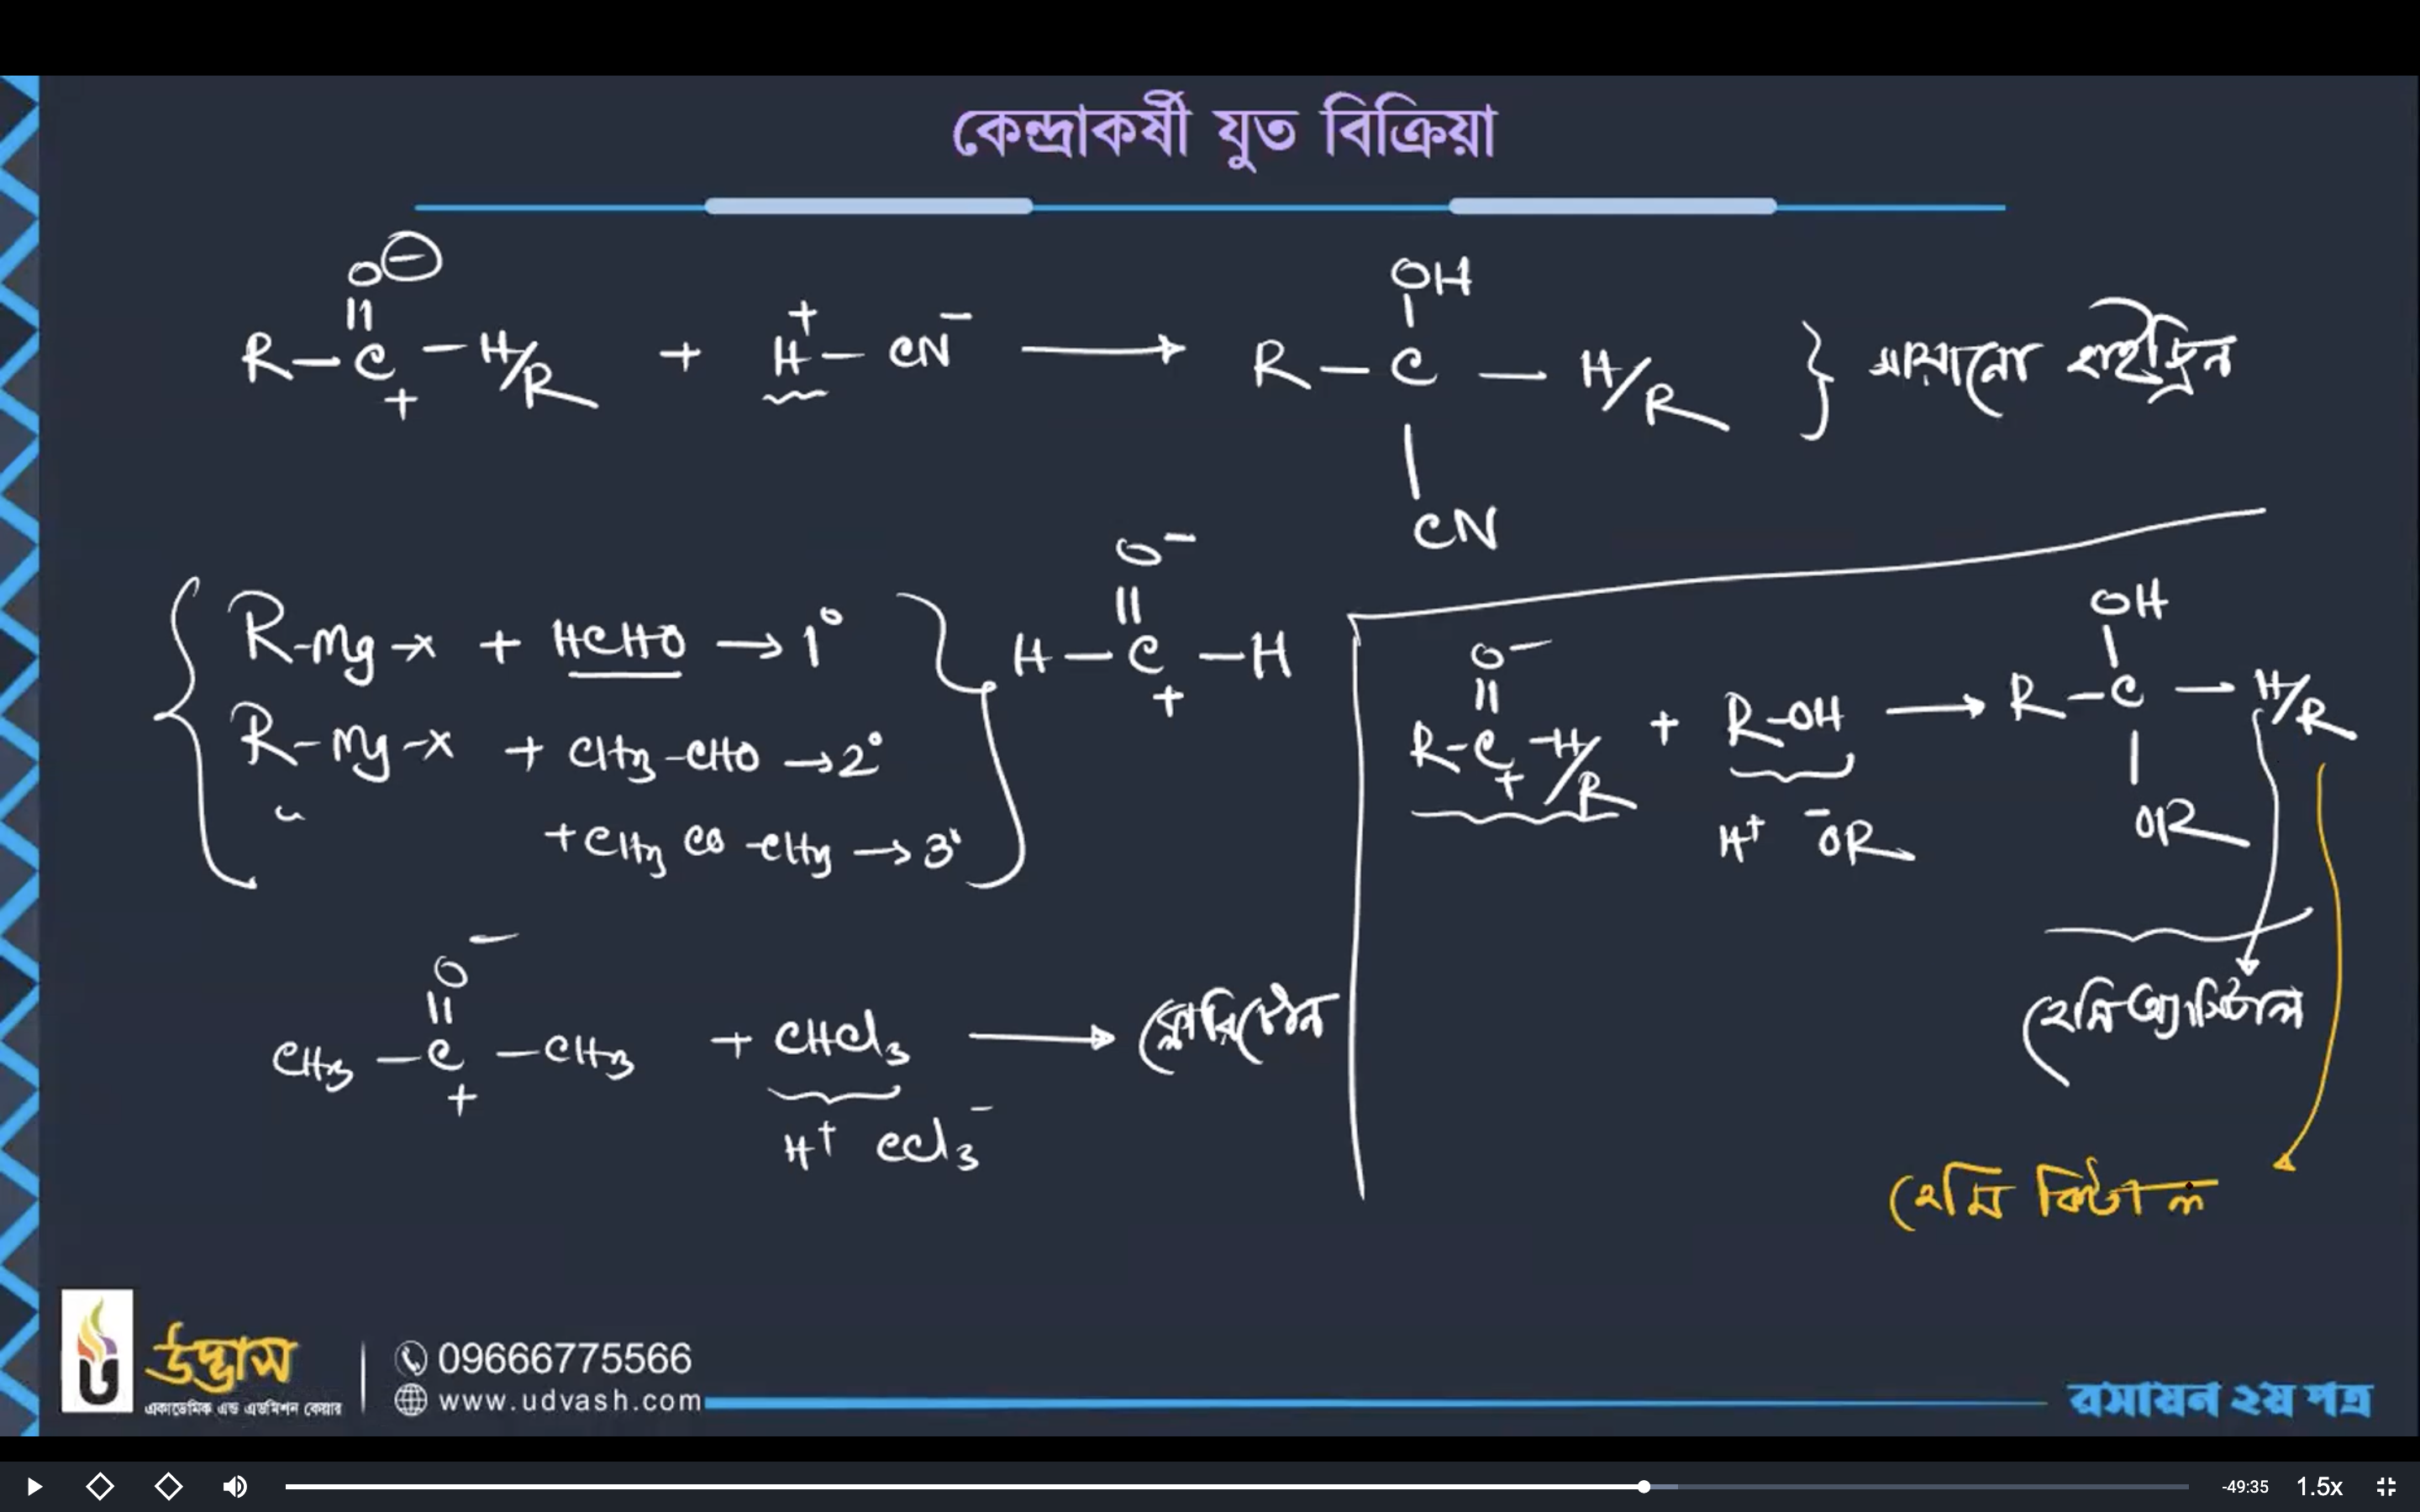 কেন্দ্রাকর্ষী যুত বিক্রিয়া
O⊖
||
R–C–H/R + H–CN⁻ → R–C–H/R } সায়ানো হাইড্রিন
+ +
OH
|
|
CN
R-Mg-X + HCHO → 1°
R-Mg-X + CH₃-CHO → 2°
" + CH₃ CO -CH₃ → 3°
O⁻
||
H–C–H
+
O⁻
||
CH₃–C–CH₃ + CHCl₃ → ক্লোরিটোন
+
H⁺ CCl₃⁻
O⁻
||
R-C-H/R + R-OH → R–C–H/R
+
H⁺ ⁻OR
OH
|
|
OR
হেমিঅ্যাসিটাল
হেমি কিটাল
উদ্ভাস
একাডেমিক এন্ড এডমিশন কেয়ার
09666775566
www.udvash.com
রসায়ন ২য় পত্র
-49:35 1.5x